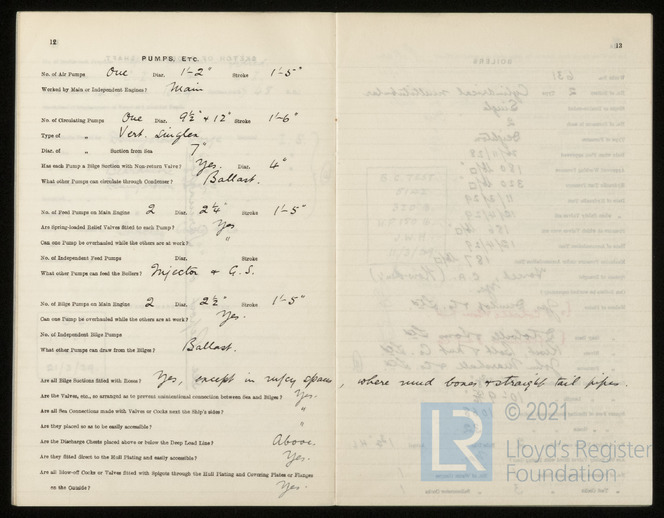 12
13
PUMPS, ETC.
No. of Air Pumps One Diar. 1'-2" Stroke 1'-5"
Worked by Main or Independent Engines? Main
No. of Circulating Pumps One Diar. 9½" & 12" Stroke 1'-6"
Type of " Vert. Duplex
Diar. of " Suction from Sea 7"
Has each Pump a Bilge Suction with Non-return Valve? Yes. Diar. 4"
What other Pumps can circulate through Condenser? Ballast.
No. of Feed Pumps on Main Engine 2 Diar. 2¼" Stroke 1'-5"
Are Spring-loaded Relief Valves fitted to each Pump? Yes
Can one Pump be overhauled while the others are at work? "
No. of Independent Feed Pumps Diar. Stroke
What other Pumps can feed the Boilers? Injector & G.S.
No. of Bilge Pumps on Main Engine 2 Diar. 2½" Stroke 1'-5"
Can one Pump be overhauled while the others are at work? Yes.
No. of Independent Bilge Pumps
What other Pumps can draw from the Bilges? Ballast.
Are all Bilge Suctions fitted with Roses? Yes, except in m/cy spaces, where mud boxes & straight tail pipes.
Are the Valves, etc., so arranged as to prevent unintentional connection between Sea and Bilges? Yes.
Are all Sea Connections made with Valves or Cocks next the Ship's sides? "
Are they placed so as to be easily accessible? "
Are the Discharge Chests placed above or below the Deep Load Line? Above.
Are they fitted direct to the Hull Plating and easily accessible? Yes.
Are all Blow-off Cocks or Valves fitted with Spigots through the Hull Plating and Covering Plates or Flanges
on the Outside? Yes.
LR © 2021
Lloyd's Register
Foundation